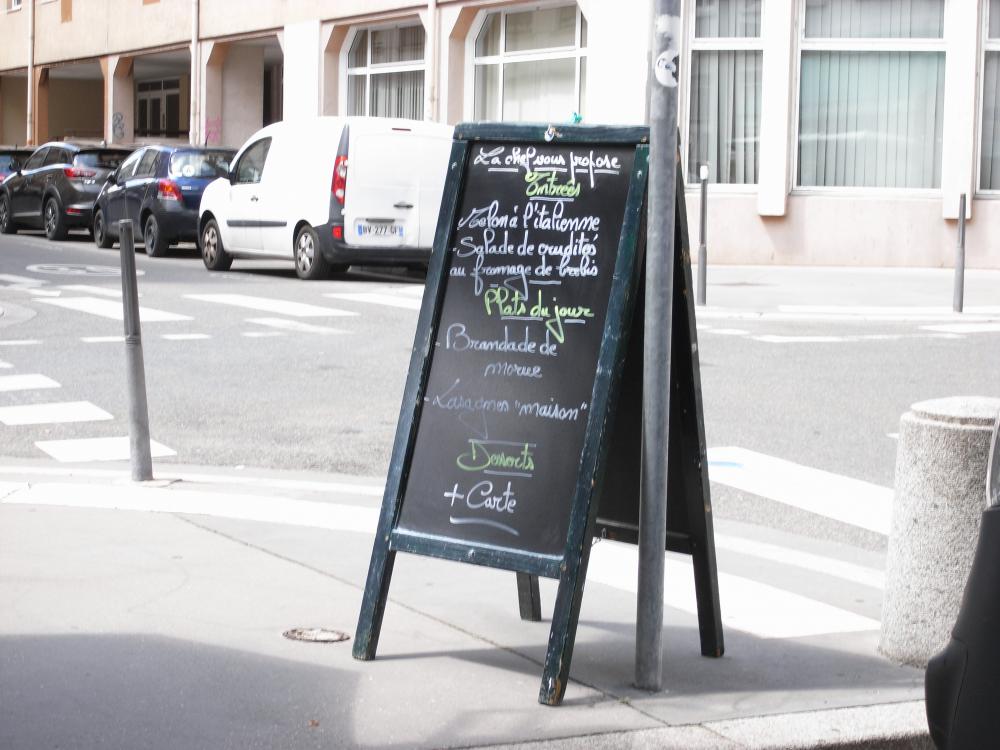 La chef vous propose
Entrées
- Melon à l'italienne
- Salade de crudités
au fromage de brebis
Plats du jour
- Brandade de
morue
- Lasagnes "maison"
Desserts
+ Carte
BV 277 GF